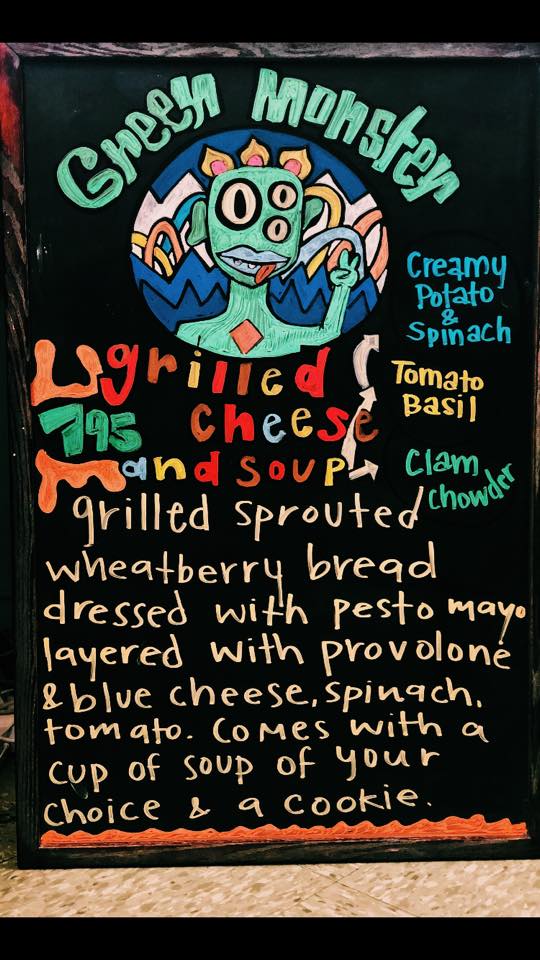 Green Monster
grilled
795 cheese
and soup
Creamy
Potato
&
Spinach
Tomato
Basil
Clam
Chowder
grilled sprouted
wheatberry bread
dressed with pesto mayo
layered with provolone
& blue cheese, spinach,
tomato. Comes with a
cup of soup of your
choice & a cookie.